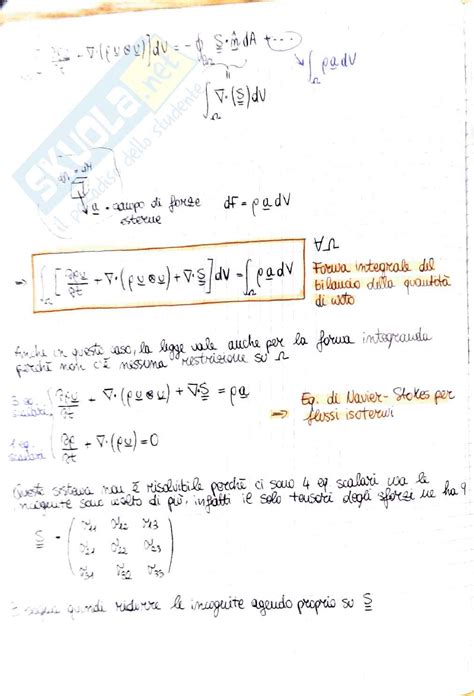 ∂ρu/∂t + ∇·(ρ u⊗u)] dV = - ∮ S·n̂ dA + ...
∫_Ω ρ a dV
∫_Ω ∇·(S) dV
SKUOLA.net
il paradiso dello studente
a = campo di forze
esterne
dF = ρ a dV
→ ∫_Ω [∂ρu/∂t + ∇·(ρ u⊗u) + ∇·S] dV = ∫_Ω ρ a dV
∀Ω
Forma integrale del
bilancio della quantità
di moto
Anche in questo caso, la legge vale anche per la forma integranda
perché non c'è nessuna restrizione su Ω
3 eq.
scalari
∂ρu/∂t + ∇·(ρ u⊗u) + ∇·S = ρ a
→ Eq. di Navier-Stokes per
flussi isotermi
1 eq.
scalare
∂ρ/∂t + ∇·(ρ u) = 0
Questo sistema non è risolvibile perché ci sono 4 eq scalari ma le
incognite sono molto di più, infatti il solo tensore degli sforzi ne ha 9
S =
𝜏11 𝜏12 𝜏13
𝜏21 𝜏22 𝜏23
𝜏31 𝜏32 𝜏33
quindi ridurre le incognite agendo proprio su S